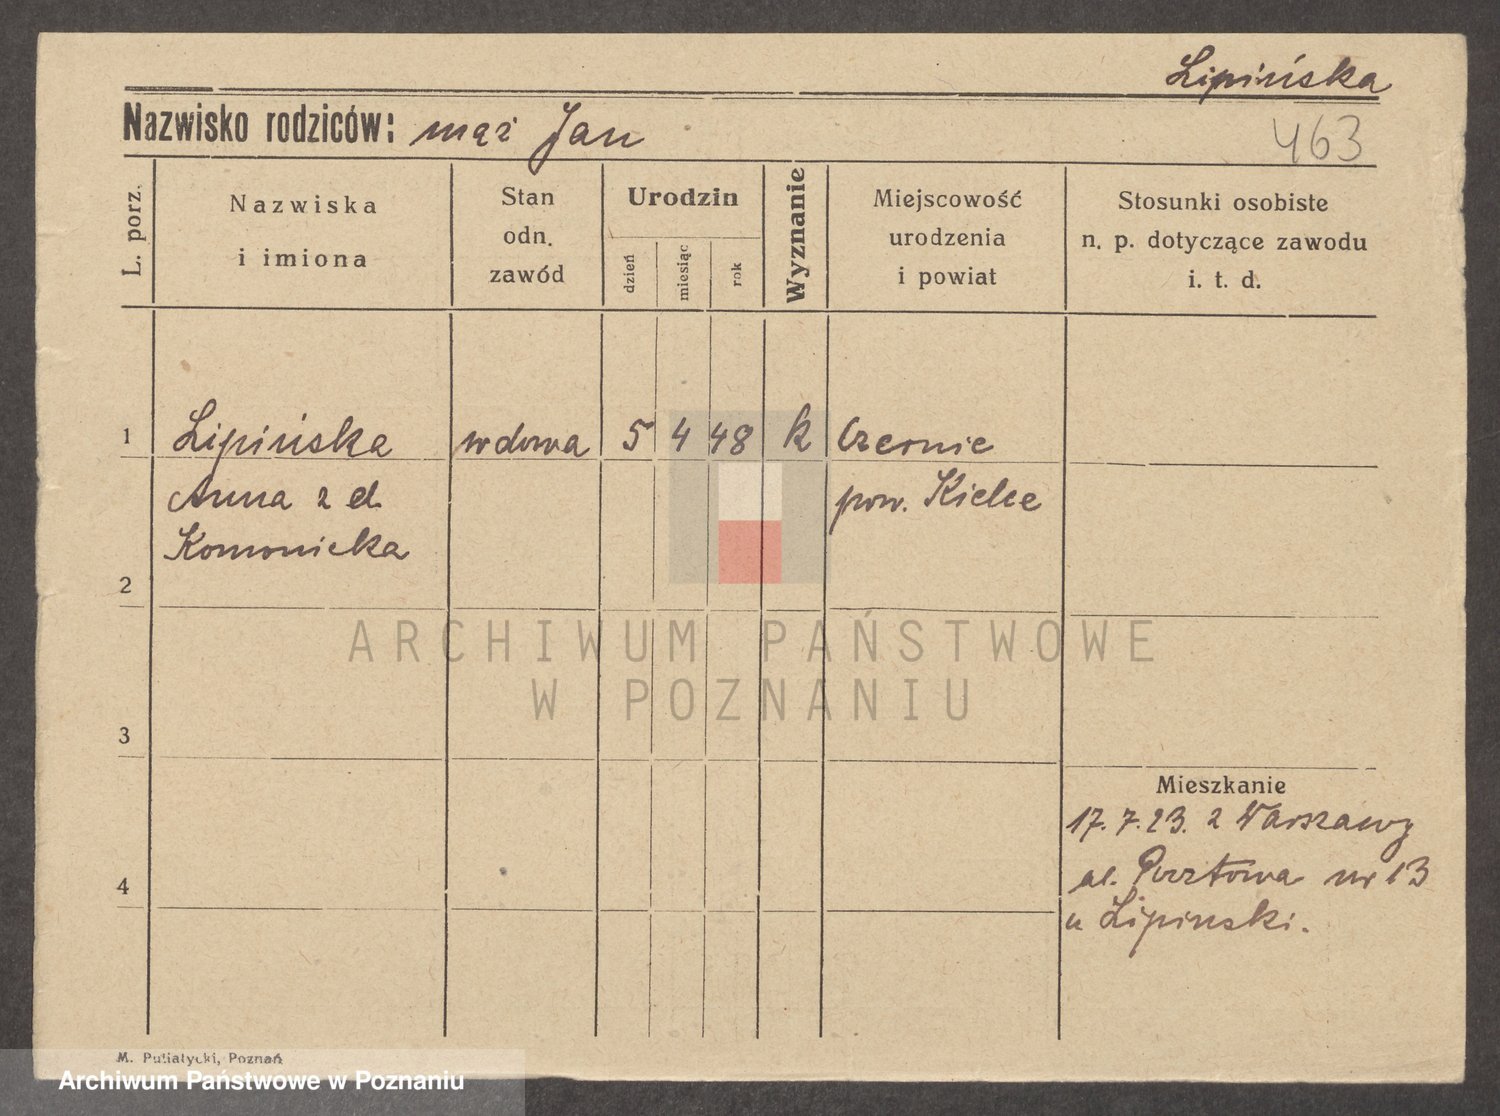 Lipińska
Nazwisko rodziców: mąż Jan
463
L. porz.
Nazwiska
i imiona
Stan
odn.
zawód
Urodzin
dzień
miesiąc
rok
Wyznanie
Miejscowość
urodzenia
i powiat
Stosunki osobiste
n. p. dotyczące zawodu
i. t. d.
1
Lipińska wdowa 5 4 48 k Czernie
Anna z d. pow. Kielce
Komonicka
2
ARCHIWUM PAŃSTWOWE
W POZNANIU
3
Mieszkanie
17. 7. 23. z Warszawy
al. Pocztowa nr 13
u Lipinski.
4
M. Putiatycki, Poznań
Archiwum Państwowe w Poznaniu